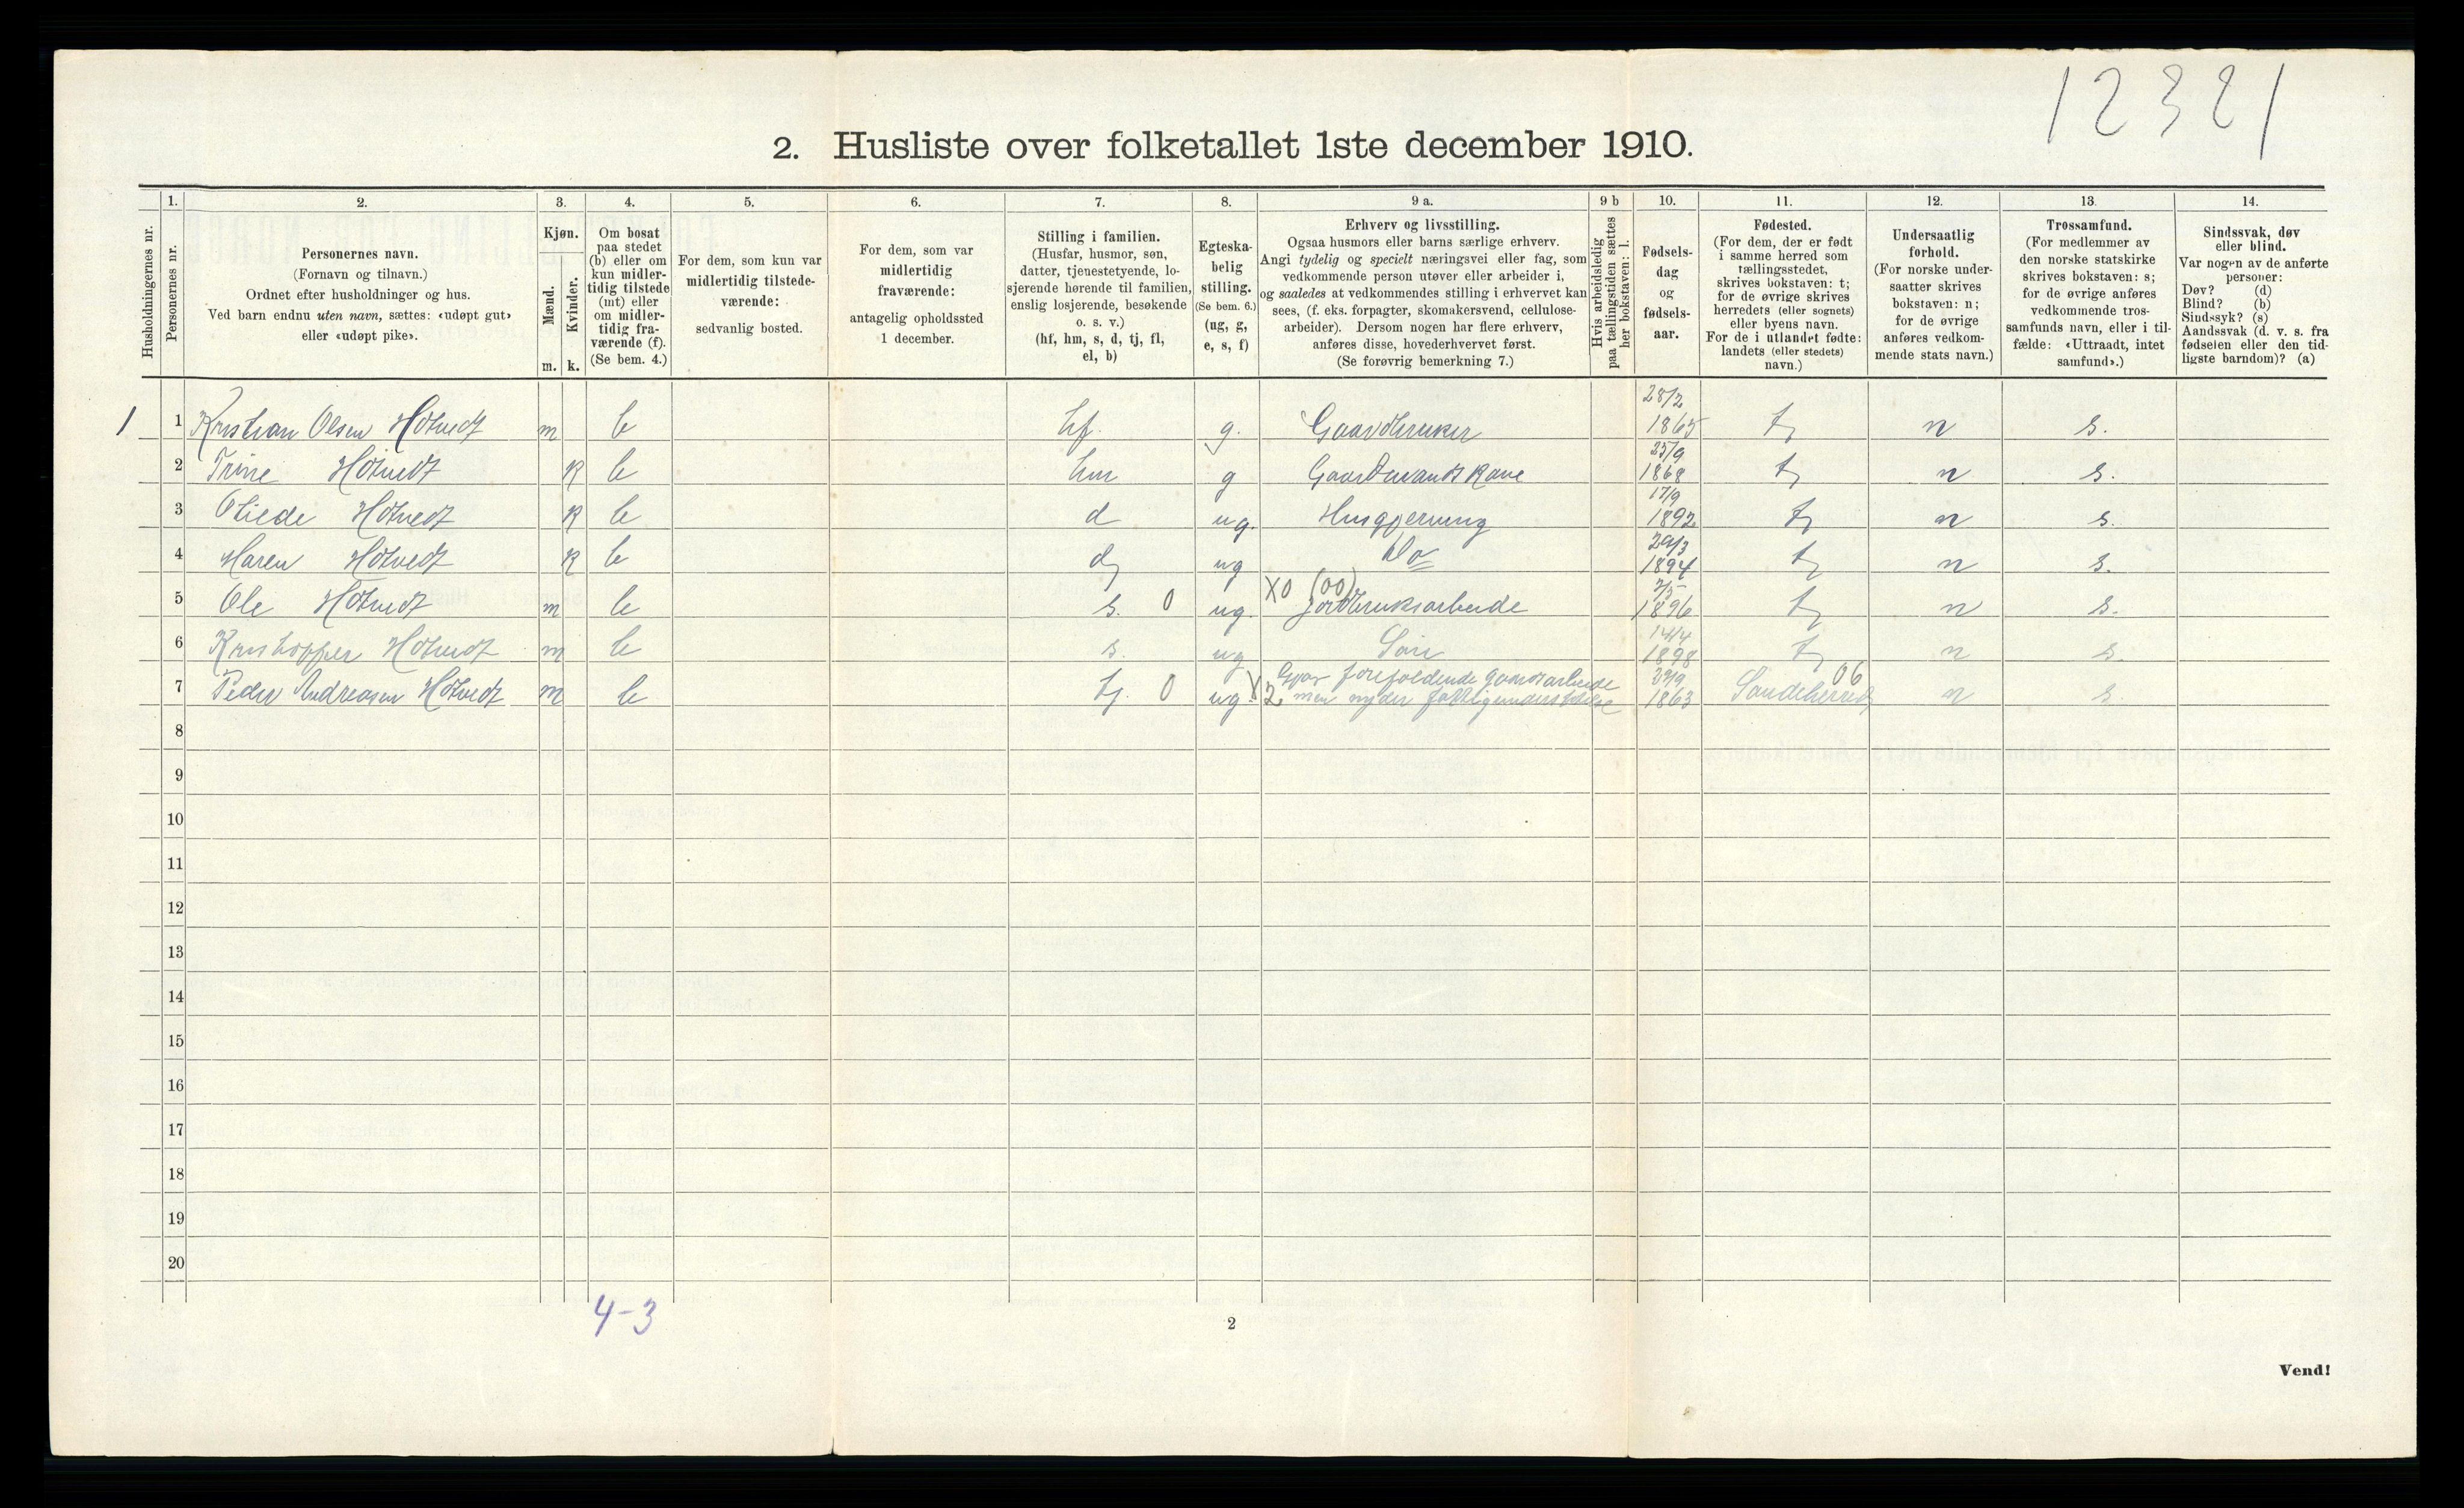 12321
2. Husliste over folketallet 1ste december 1910.
Husholdningernes nr.
1. Personernes nr.
2. Personernes navn.
(Fornavn og tilnavn.)
Ordnet efter husholdninger og hus.
Ved barn endnu uten navn, sættes: «udøpt gut»
eller «udøpt pike».
3. Kjøn.
Mænd. m.
Kvinder. k.
4. Om bosat
paa stedet
(b) eller om
kun midler-
tidig tilstede
(mt) eller
om midler-
tidig fra-
værende (f).
(Se bem. 4.)
5. For dem, som kun var
midlertidig tilstede-
værende:
sedvanlig bosted.
6. For dem, som var
midlertidig
fraværende:
antagelig opholdssted
1 december.
7. Stilling i familien.
(Husfar, husmor, søn,
datter, tjenestetyende, lo-
sjerende hørende til familien,
enslig losjerende, besøkende
o. s. v.)
(hf, hm, s, d, tj, fl,
el, b)
8. Egteska-
belig
stilling.
(Se bem. 6.)
(ug, g,
e, s, f)
9 a. Erhverv og livsstilling.
Ogsaa husmors eller barns særlige erhverv.
Angi tydelig og specielt næringsvei eller fag, som
vedkommende person utøver eller arbeider i,
og saaledes at vedkommendes stilling i erhvervet kan
sees, (f. eks. forpagter, skomakersvend, cellulose-
arbeider). Dersom nogen har flere erhverv,
anføres disse, hovederhvervet først.
(Se forøvrig bemerkning 7.)
9 b Hvis arbeidsledig
paa tællingstiden sættes
her bokstaven: l.
10. Fødsels-
dag
og
fødsels-
aar.
11. Fødested.
(For dem, der er født
i samme herred som
tællingsstedet,
skrives bokstaven: t;
for de øvrige skrives
herredets (eller sognets)
eller byens navn.
For de i utlandet fødte:
landets (eller stedets)
navn.)
12. Undersaatlig
forhold.
(For norske under-
saatter skrives
bokstaven: n;
for de øvrige
anføres vedkom-
mende stats navn.)
13. Trossamfund.
(For medlemmer av
den norske statskirke
skrives bokstaven: s;
for de øvrige anføres
vedkommende tros-
samfunds navn, eller i til-
fælde: «Uttraadt, intet
samfund».)
14. Sindssvak, døv
eller blind.
Var nogen av de anførte
personer:
Døv? (d)
Blind? (b)
Sindssyk? (s)
Aandssvak (d. v. s. fra
fødselen eller den tid-
ligste barndom)? (a)
1 1 Kristian Olsen Hotvedt m b hf. g. Gaardbruker 28/2 1865 t n s.
2 Trine Hotvedt k b hm g Gaardmandskone 25/9 1868 t n s.
3 Otilede Hotvedt k b d ug. Husgjerning 17/9 1892 t n s.
4 Maren Hotvedt k b d ug Do 29/3 1894 t n s.
5 Ole Hotvedt m b s. 0 ug. X0 (00) jordbruksarbeide 7/5 1896 t n s.
6 Kristoffer Hotvedt m b s. ug Søn 14/4 1898 t n s.
7 Peder Andreasen Hotvedt m b tj. 0 ug X2 Gjør forefaldende gaardsarbeide
men nyder fattigunderstøttelse 29/9 1863 Sandeherred 06 n s.
8
9
10
11
12
13
14
15
16
17
18
19
20
4-3
2
Vend!